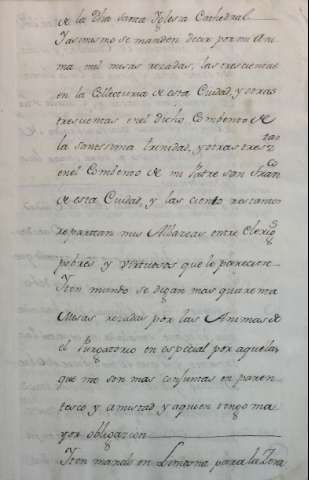 de la Dha santa Iglesia Cathedral
Iasmismo se manden decir por mi Ani
ma mil misas rezadas, las trescientas
en la Collecturia de esta Ciudad, y otras
trescientas en el dicho Combento de
la santissima trinidad, y otras tres
tas
en el Combento de mi Padre san Fran
co
de esta Ciudad, y las ciento restantes
repartan mis Albaceas entre Clerigos
pobres y virtuosos que le pareciere
Iten mando se digan mas quarenta
Missas rezadas por las Animas de
el Purgatorio en especial por aquellas
que me son mas conjuntas en paren
tesco y amistad y aquien tengo ma
yor obligazion
Iten mando en Limosna para la Zera